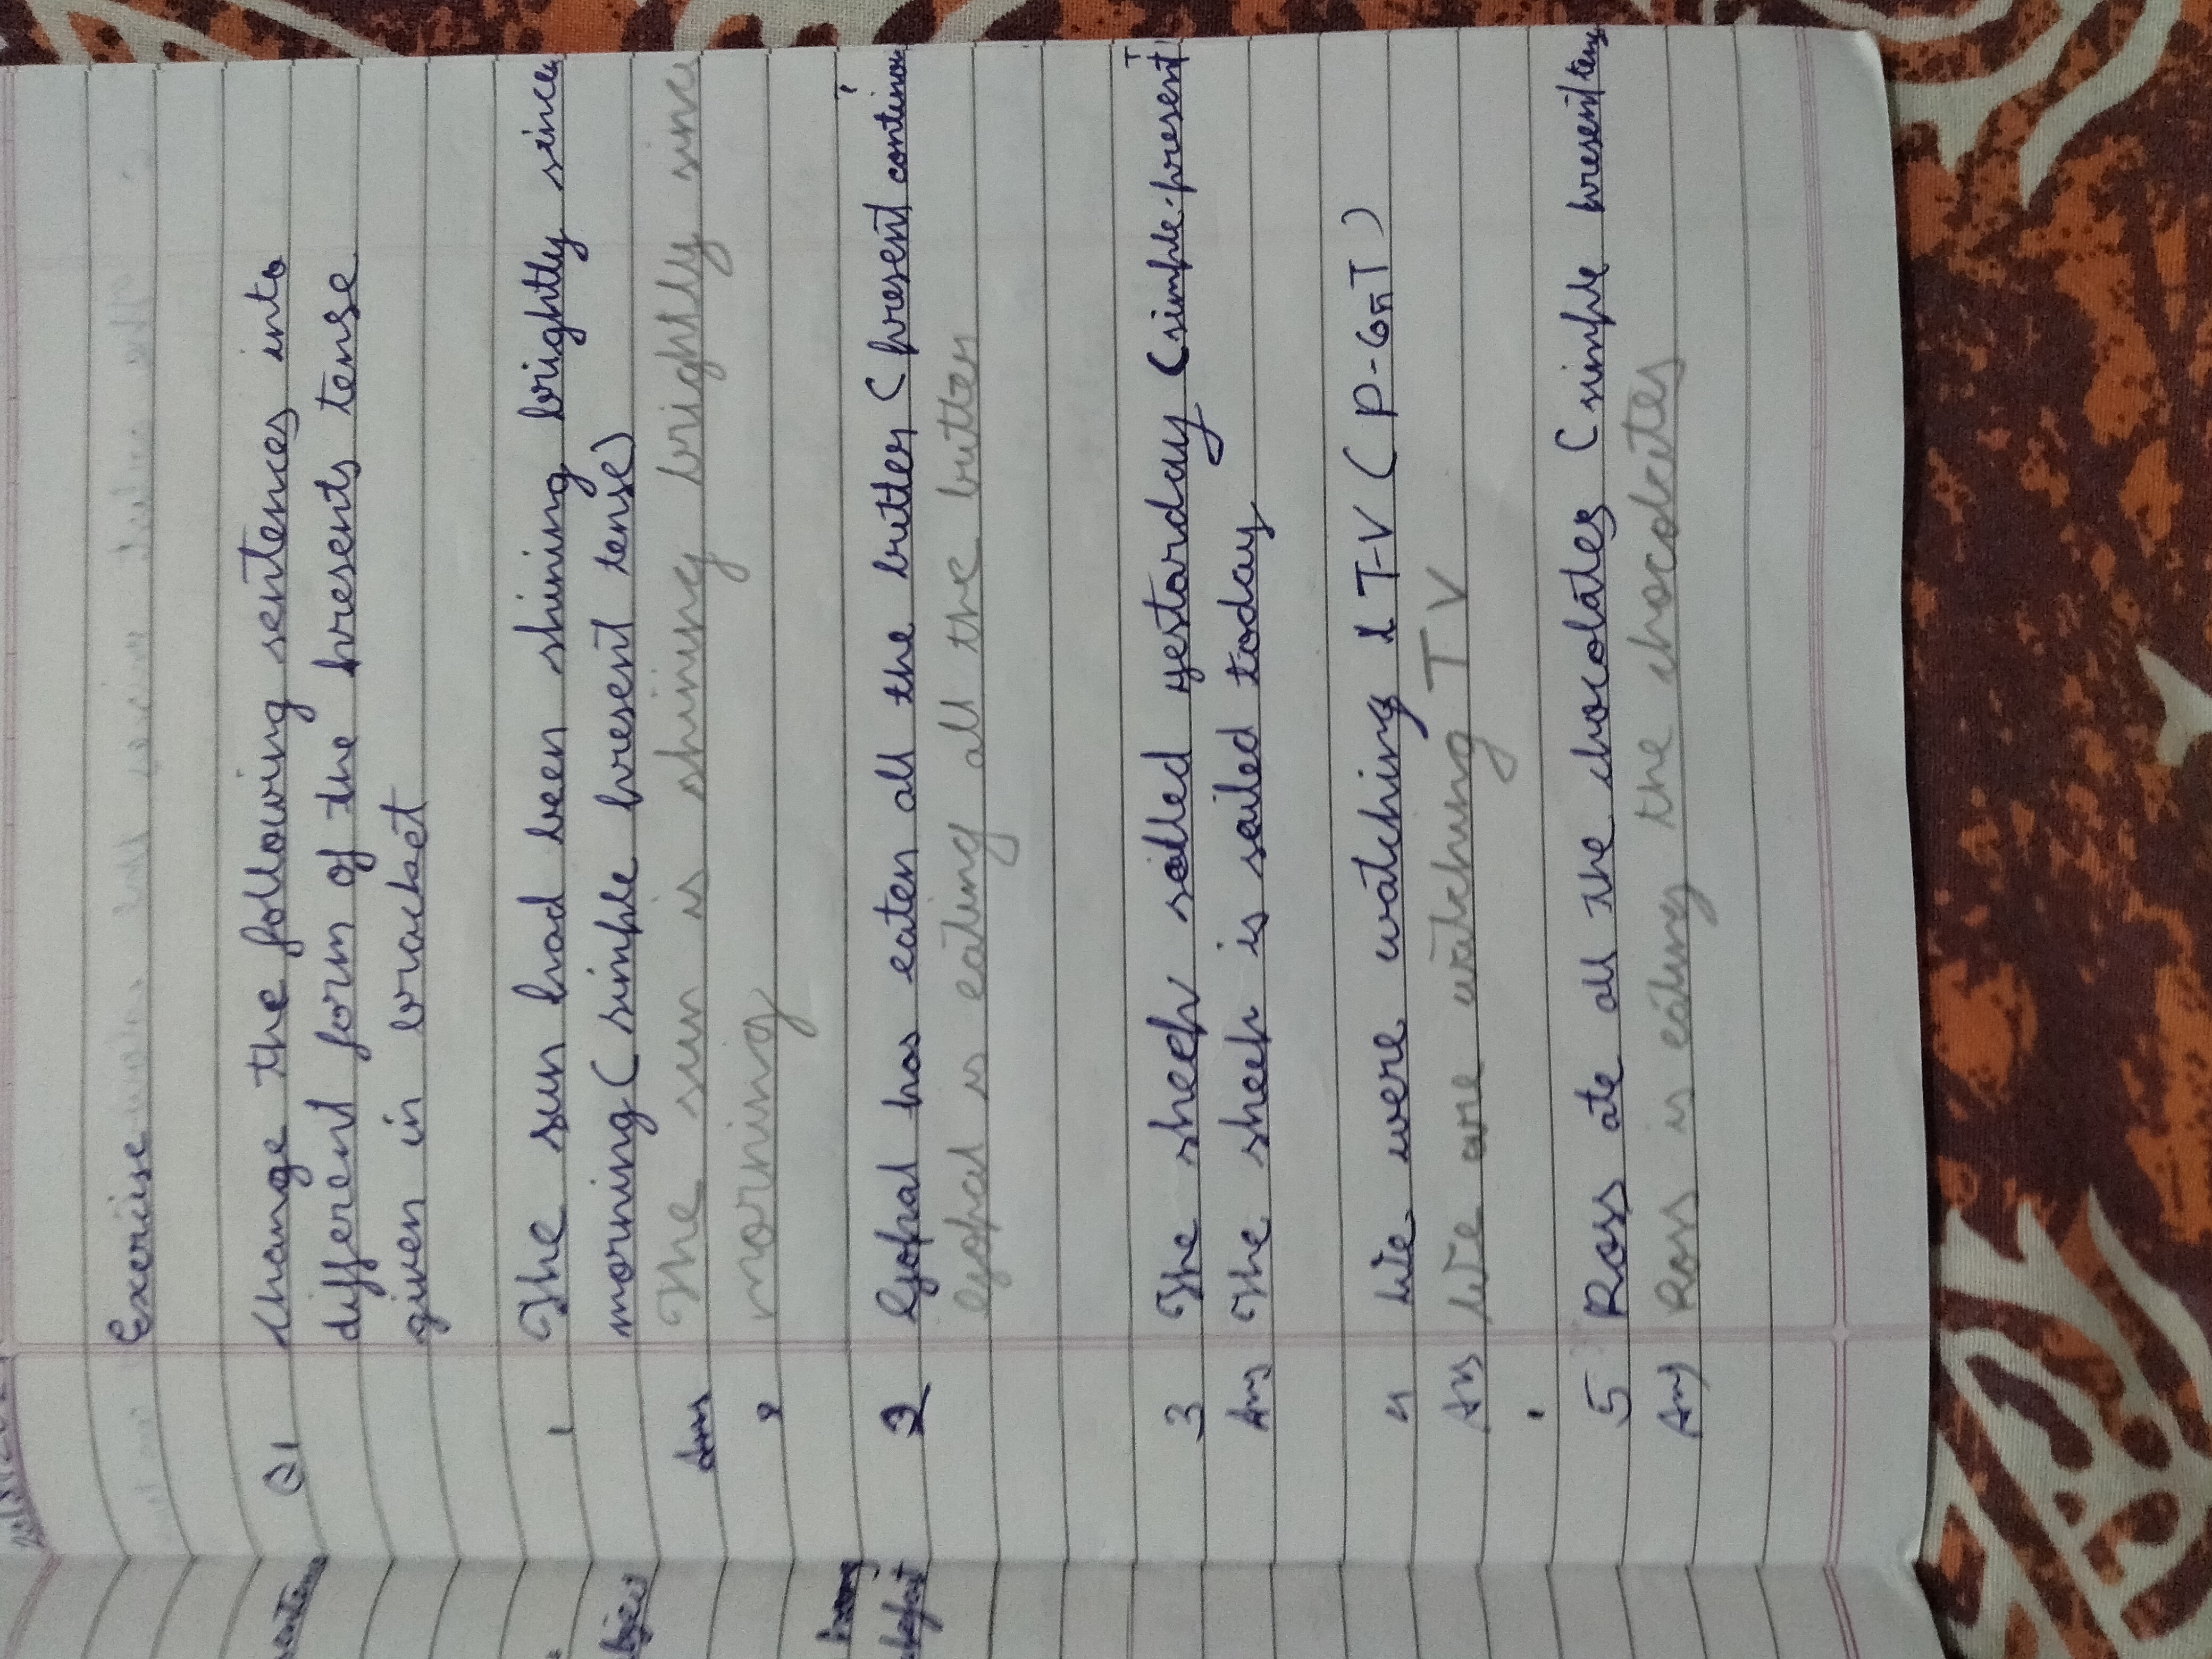 Exercise
Q1 Change the following sentences into
different form of the presents tense
given in bracket
1 The sun had been shining brightly since
morning (simple present tense)
Ans The sun is shining brightly since
morning
2 Gopal has eaten all the butter (present continou
Gopal is eating all the butter
3 The sheep sailed yestarday (simple present T
Ans The sheep is sailed today
4 We were watching T-V (P-Con T)
Ans We are watching TV
5 Ross ate all the chocolates (simple present tens
Ans Ross is eating the chocolates